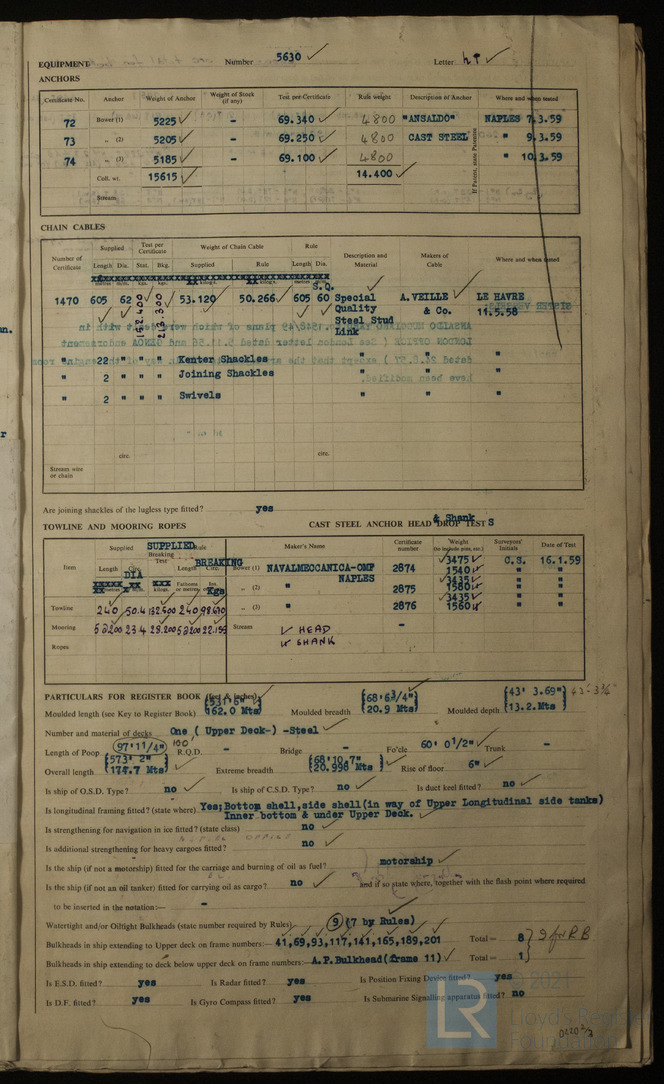 EQUIPMENT Number 5630 Letter
ANCHORS
Certificate No. Anchor Weight of Anchor Weight of Stock (if any) Test per Certificate Rule weight Description of Anchor Where and when tested
72 Bower (1) 5225 - 69.340 4800 "ANSALDO" NAPLES 7.3.59
73 " (2) 5205 - 69.250 4800 CAST STEEL " 9.3.59
74 " (3) 5185 - 69.100 4800 " 10.3.59
Coll. wt. 15615 14.400
Stream
If Patent, state Patentee
CHAIN CABLES
Number of Certificate Supplied Length Dia. Test per Certificate Stat. Bkg. Weight of Chain Cable Supplied Rule Rule Length Dia. Description and Material Makers of Cable Where and when tested
S.Q.
1470 605 62 152.400 213.300 53.120 50.266 605 60 Special A.VEILLE LE HAVRE
Quality & Co. 11.5.58
Steel Stud
Link
" 22 " " " Kenter Shackles " " "
" 2 " " " Joining Shackles " " "
" 2 " " " Swivels " " "
circ. circ.
Stream wire or chain
Are joining shackles of the lugless type fitted? yes
TOWLINE AND MOORING ROPES CAST STEEL ANCHOR HEAD & Shank DROP TESTS
Item Supplied Length Circ. DIA SUPPLIED Breaking Test Rule Length Circ. BREAKING Kgs
Maker's Name Certificate number Weight (to include pins, etc.) Surveyors' Initials Date of Test
Bower (1) NAVALMECCANICA-OMF 2874 3475 1540 C.S. 16.1.59
NAPLES
" (2) " 2875 3435 1580 " "
" (3) " 2876 3435 1560 " "
Towline 240 50.4 132.600 240 98.670
Mooring 5à200 23.4 28.200 5à200 22.155 Stream HEAD -
Ropes SHANK
PARTICULARS FOR REGISTER BOOK (feet & inches)
Moulded length (see Key to Register Book) (531' 6") 162.0 Mts Moulded breadth (68'6¾") 20.9 Mts Moulded depth (43' 3.69") 13.2.Mts
Number and material of decks One ( Upper Deck-) -Steel
Length of Poop 97'11/4" 100' R.Q.D. - Bridge - Fo'cle 60' 0½" Trunk -
Overall length (573' 2") 174.7 Mts Extreme breadth (68'10.7") (20.998 Mts) Rise of floor 6"
Is ship of O.S.D. Type? no Is ship of C.S.D. Type? no Is duct keel fitted? no
Is longitudinal framing fitted? (state where) Yes;Bottom shell,side shell(in way of Upper Longitudinal side tanks)
Inner bottom & under Upper Deck.
Is strengthening for navigation in ice fitted? (state class) no
Is additional strengthening for heavy cargoes fitted? no
Is the ship (if not a motorship) fitted for the carriage and burning of oil as fuel? motorship
Is the ship (if not an oil tanker) fitted for carrying oil as cargo? no and if so state where, together with the flash point where required
to be inserted in the notation:— -
Watertight and/or Oiltight Bulkheads (state number required by Rules) 9 (7 by Rules)
Bulkheads in ship extending to Upper deck on frame numbers:— 41,69,93,117,141,165,189,201 Total = 8 9 for RB
Bulkheads in ship extending to deck below upper deck on frame numbers:— A.P.Bulkhead(frame 11) Total = 1
Is E.S.D. fitted? yes Is Radar fitted? yes Is Position Fixing Device fitted? yes
Is D.F. fitted? yes Is Gyro Compass fitted? yes Is Submarine Signalling apparatus fitted? no
© 2021
LR
Lloyd's Register
Foundation